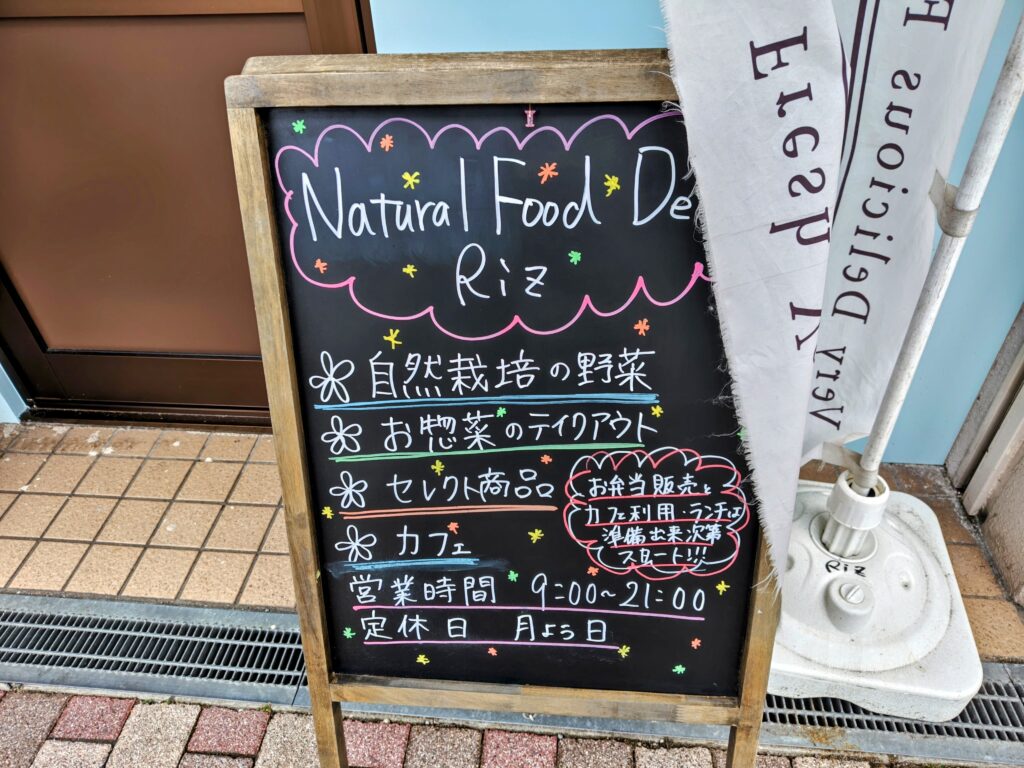 Natural Food De
Riz
自然栽培の野菜
お惣菜のテイクアウト
セレクト商品
カフェ
お弁当販売と
カフェ利用・ランチは
準備出来次第
スタート!!!
営業時間 9:00~21:00
定休日 月よう日
Fresh
Very Delicious
RiZ